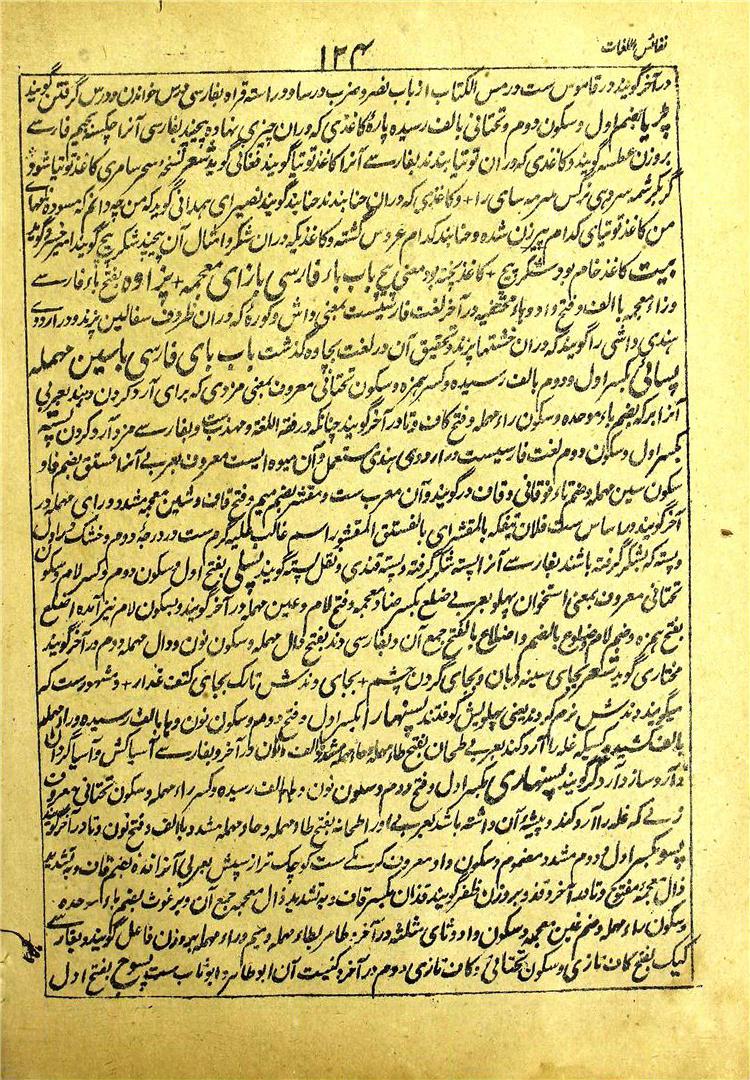 نفائس اللغات
۱۲۴
در آخر گویند در قاموس ست درس الکتاب از باب نصر و ضرب درسا و دراسته قراه بفارسی درس خواندن و درس گرفتن گویند
پڑیا بضم اول و سکون دوم و تحتانی بالف رسیده پارهٔ کاغذی که دران چیزی نهاده پیچند بفارسی آنرا چکسه بجیم فارسے
بروزن عطسه گویند و کاغذی که دران توتیا بندند بفارسے آنرا کاغذ توتیا گویند فغانی گوید شعر سرمه سامری کاغذ توتیا شود
گر کرشمه سر دهی نرگس سرمه سای را + و کاغذی که دران حنا بندند حنا بند گویند نصیرای همدانی گوید که من چه دانم که مسوده
من کاغذ توتیای کدام پیرزن شده و حنابند کدام عروس گشته و کاغذیکه دران شکر و امثال آن پیچند شکر پیچ گویند امیر خسرو گوید
بیت کاغذ خام بود شکر پیچ + کاغذ پخته بود معنی پیچ باب باء فارسی بازای معجمه + پزاوه بفتح باء فارسے
وزاء معجمه با الف و فتح واو و هاء مختفیه در آخر لغت فارسیست بمعنی داش و کوره که دران ظروف سفالین پزند و در اردوی
هندی داشی را گویند که دران خشتها پزند و تحقیق آن در لغت پجاوه گذشت باب بای فارسی باسین مهمله
پسائی بکسر اول و دوم بالف رسیده و کسر همزه و سکون تحتانی معروف بمعنی مزدی که برای آرد کردن دهند بعربی
آنرا برکه بضم باء موحده و سکون راء مهمله و فتح کاف و تا در آخر گویند چنانکه در فقه اللغه و مهذب ست و بفارسے مزد آرد کردن پسته
بکسر اول و سکون دوم لغت فارسیست در اردوی هندی مستعمل و آن میوه ایست معروف بعربے آنرا فستق بضم فاو
سکون سین مهمله و ضم تاء فوقانی و قاف در گویند و آن معرب ست و مقشر بضم میم و فتح قاف و شین معجمه مشدد و رای مهمله در
آخر گویند در اساس ست فلان یتفکه بالمقشر ای بالفستق المقشر اسم غالب علیه گرم ست در درجهٔ دوم و خشک در اول
و پسته که بشکر گرفته باشند بفارسے آنرا پسته شکر گرفته و پسته قندی و نقل پسته گویند پسلی بفتح اول و سکون دوم و کسر لام و سکون
تحتانی معروف بمعنی استخوان پهلو بعربے ضلع بکسر ضاد معجمه و فتح لام و عین مهمله در آخر گویند و بسکون لام نیز آمده اضلع
بفتح همزه و ضم لام و ضلوع بالضم و اضلاع بالفتح جمع آن و بفارسی دند بفتح دال مهمله و سکون نون و دال مهمله دوم در آخر گویند
مختاری گوید شعر بجای سینه کهان و بجای گردن چشم + بجای دندش تارک بجای کتفت غدار + و مشهورست که
میگویند دندش نرم که دند یعنی پهلویش کوفتند پسنهارا بکسر اول و فتح دوم و سکون نون و ها بالف رسیده و راء مهمله
بالف کشیده کسیکه غله را آرد کند بعربے طحان بفتح طاء مهمله و حاء مهمله مشدد بالف و نون در آخر و بفارسے آسیا کش و آسیا گردان
و آرد ساز دار گویند پسنهاری بکسر اول و فتح دوم و سکون نون و ها بالف رسیده و کسر راء مهمله و سکون تحتانی معروف
زنے که غله را آرد کند و پیشهٔ آن داشته باشد بعربے اورا طحانه بفتح طاء مهمله و حاء مهمله مشدد با الف و فتح نون و تا در آخر گویند
پسو بکسر اول و دوم مشدد مضموم و سکون واو معروف کرمکے ست کوچک تر از سپش بعربی آنرا قذه بضم قاف و به تشدید
ذال معجمه مفتوح و تا در آخر و قذ و بروزن ظفر گویند قذان بکسر قاف و به تشدید ذال معجمه جمع آن و برغوث بضم باء موحده
و سکون راء مهمله و ضم غین معجمه و سکون واو و ثای مثلثه در آخر و طامر بطاء مهمله و میم و راء مهمله بروزن فاعل گویند و بفارسے
کیک بفتح کاف تازی و سکون تحتانی و کاف تازی دوم در آخر و کنیت آن ابو طامر و ابو ثاب ست پسوج بفتح اول